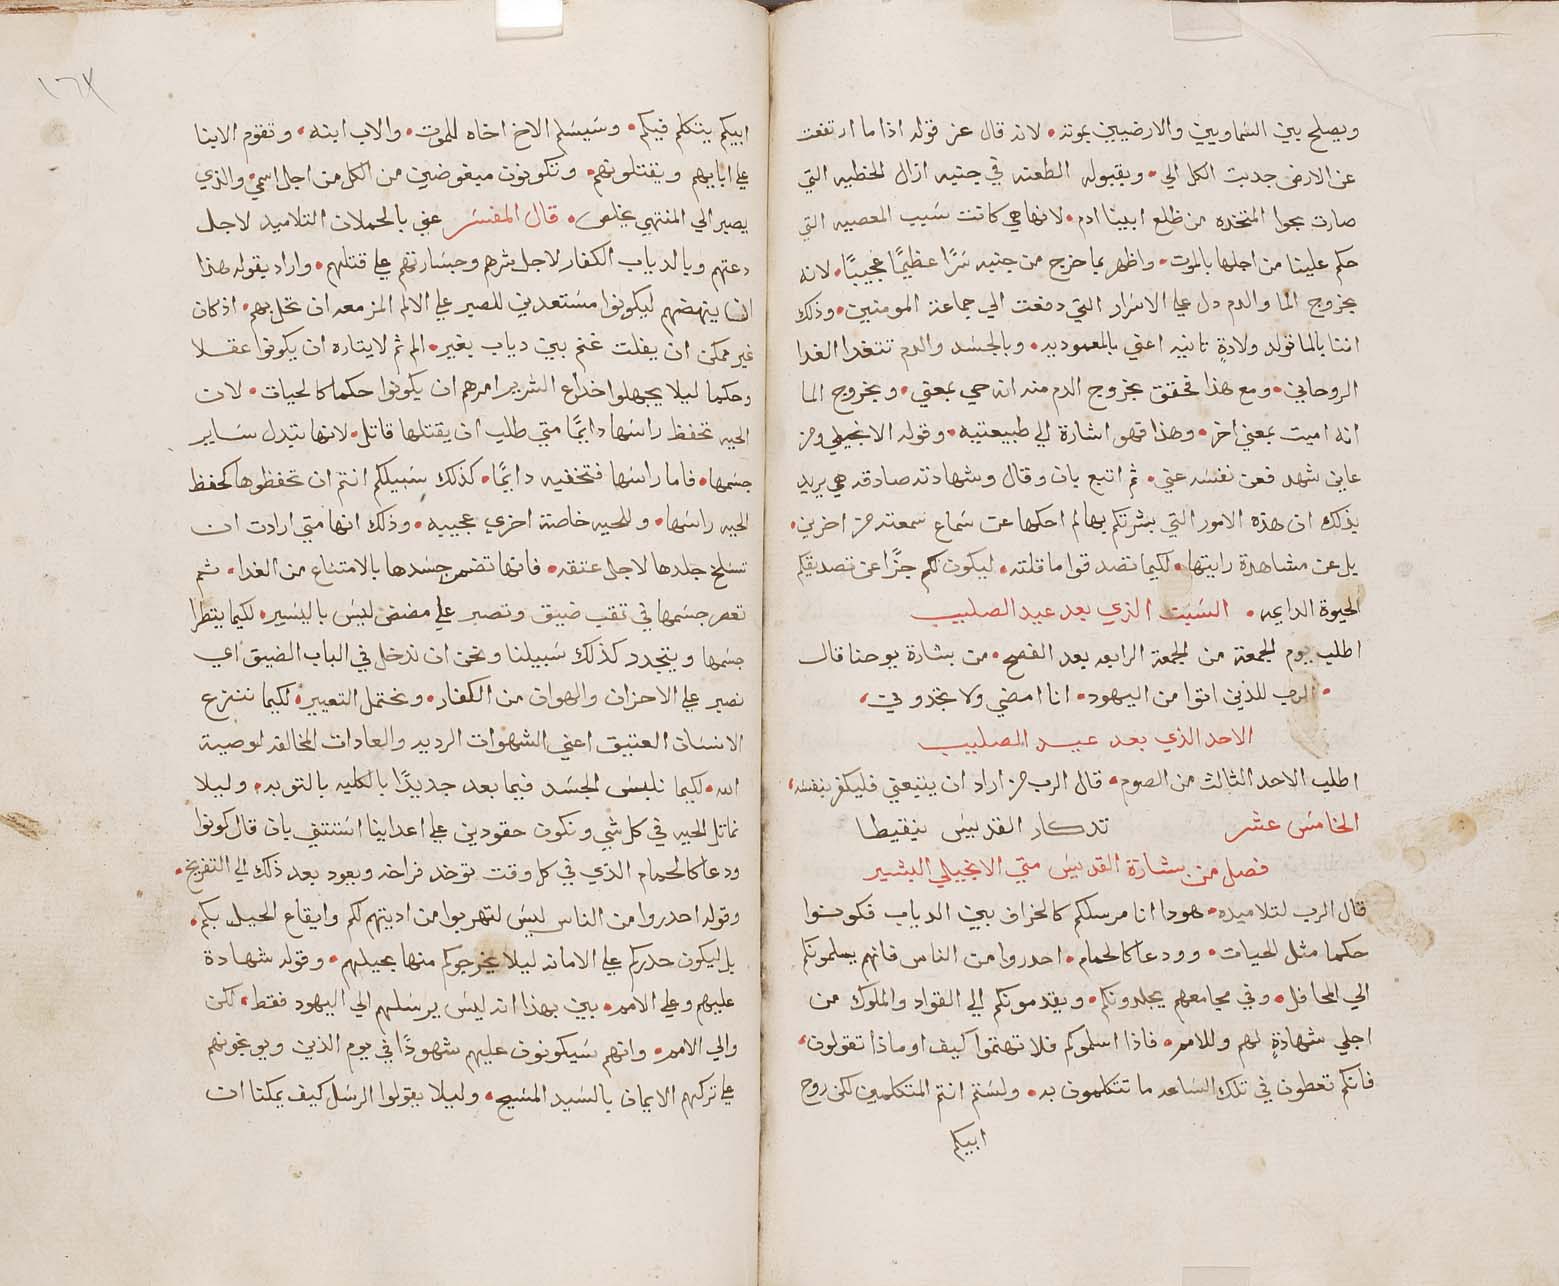 ويصلح بين السماويين والارضيين بموته • لانه قال عن قوله اذا ما ارتفعت
عن الارض جدبت الكل الي • وبقبوله الطعنه في جنبه ازال الخطيه التي
صارت بحوا المتخده من ظلع ابينا ادم • لانها هي كانت سبب المعصيه التي
حكم علينا من اجلها بالموت • واظهر بما خرج من جنبه سرًا عظيمًا عجيبًا • لانه
بخروج الما والدم دل علي الاسرار التي دفعت الي جماعة المومنين • وذلك
اننا بالما نولد ولادةٍ تانيه اعني بالمعموديه • وبالجسد والدم نتغدا الغدا
الروحاني • ومع هذا فحقق بخروج الدم منه انه حي بمعني • وبخروج الما
انه اميت بمعني اخر • وهذا فهو اشارة الي طبيعتيه • وقوله الانجيلي ومن
عاين شهد فعن نفسه عني • ثم اتبع بان وقال وشهادته صادقه هي يريد
بذلك ان هذه الامور التي بشرتكم بها لم احكها عن سماع سمعته من اخرين •
بل عن مشاهدة رايتها • لكيما تصدقوا ما قلته • ليكون لكم جزًا عن تصديقكم
الحيوة الدايمه • السبت الذي بعد عيد الصليب
اطلب يوم الجمعة من الجمعة الرابعه بعد الفصح • من بشارة يوحنا قال
• الرب للذين اتوا من اليهود • انا امضي ولا تجدوني •
الاحد الذي بعد عيد الصليب
اطلب الاحد الثالث من الصوم • قال الرب من اراد ان يتبعني فليكفر بنفسه •
الخامس عشر تدكار القديس نيقيطا
فصل من بشارة القديس متي الانجيلي البشير
قال الرب لتلاميذه • هودا انا مرسلكم كالخراف بين الدياب فكونوا
حكما مثل الحيات • وودعا كالحمام • احدروا من الناس فانهم يسلمونكم
الي المحافل • وفي مجامعهم يجلدونكم • ويقدمونكم الي القواد والملوك من
اجلي شهادةٍ لهم وللامم • فاذا اسلموكم فلا تهتموا كيف او ماذا تقولون •
فانكم تعطون في تلك الساعه ما تتكلمون به • ولستم انتم المتكلمين لكن روح
ابيكم
١٦٧
ابيكم يتكلم فيكم • وسيسلم الاخ اخاه للموت • والاب ابنه • وتقوم الابنا
علي ابايهم ويقتلونهم • وتكونون مبغوضين من الكل من اجل اسمي • والذي
يصبر الي المنتهي يخلص • قال المفسر عني بالحملان التلاميد لاجل
دعتهم وبالدياب الكفار لاجل شرهم وجسارتهم علي قتلهم • واراد بقوله هذا
ان ينهضهم ليكونوا مستعدين للصبر علي الالم المزمعه ان تحل بهم • اذ كان
غير ممكن ان يفلت غنم بين دياب بغير الم • ثم لايثاره ان يكونوا عقلا
وحكما ليلا يجهلوا خداع الشرير امرهم ان يكونوا حكما كالحيات • لان
الحيه تحفظ راسها دايمًا متي طلب ان يقتلها قاتل • لانها تبدل ساير
جسمها • فاما راسها فتخفيه دايمًا • كذلك سبيلكم انتم ان تحفظوها كحفظ
الحيه راسها • وللحيه خاصة اخري عجيبه • وذلك انها متي ارادت ان
تسلخ جلدها لاجل عتقه • فانها تضمر جسدها بالامتناع من الغدا • ثم
تعصر جسمها في تقب ضيق وتصبر علي مضض ليس باليسير • لكيما يتطرا
جسمها ويتجدد كذلك سبيلنا ونحن ان ندخل في الباب الضيق اي
نصبر علي الاحزان والهوان من الكفار • ونحتمل التعيير • لكيما ننزع
الانسان العتيق اعني الشهوات الرديه والعادات المخالفه لوصية
الله • لكيما نلبس الجسد فيما بعد جديدًا بالكليه بالتوبه • وليلا
نماتل الحيه في كل شي ونكون حقودين علي اعداينا استتني بان قال كونوا
ودعا كالحمام الذي في كل وقت توخد فراخه ويعود بعد ذلك الي التفريخ •
وقوله احدروا من الناس ليس لتهربوا من اديتهم لكم وايقاع الحيل بكم •
بل ليكون حدركم علي الامانه ليلا يخرجوكم منها بحيلهم • وقوله شهادة
عليهم وعلي الامم • بين بهذا انه ليس يرسلهم الي اليهود فقط • لكن
والي الامم • وانهم سيكونون عليهم شهودًا في يوم الدين ويوبخونهم
علي تركهم الايمان بالسيد المسيح • وليلا يقولوا الرسل كيف يمكننا ان